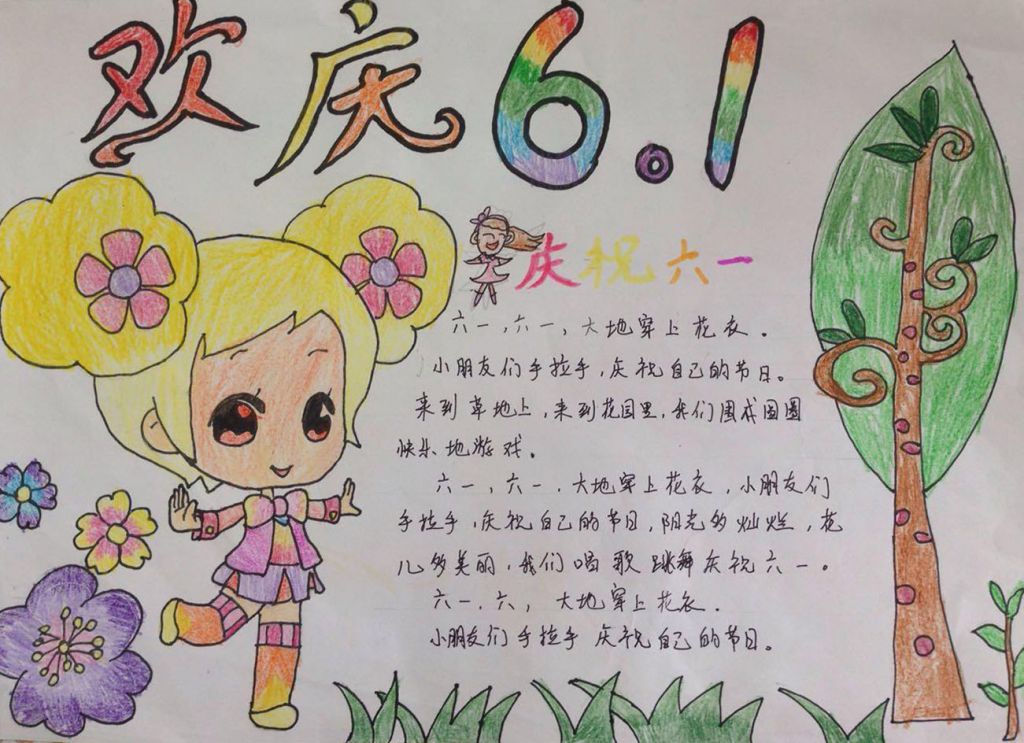 欢庆6.1
庆祝六一
六一,六一,大地穿上花衣.
小朋友们手拉手,庆祝自己的节日。
来到草地上,来到花园里,我们围成圆圈
快乐地游戏。
六一,六一.大地穿上花衣,小朋友们
手拉手,庆祝自己的节日,阳光多灿烂,花
儿多美丽,我们唱歌跳舞庆祝六一。
六一.六,大地穿上花衣.
小朋友们手拉手 庆祝自己的节日。